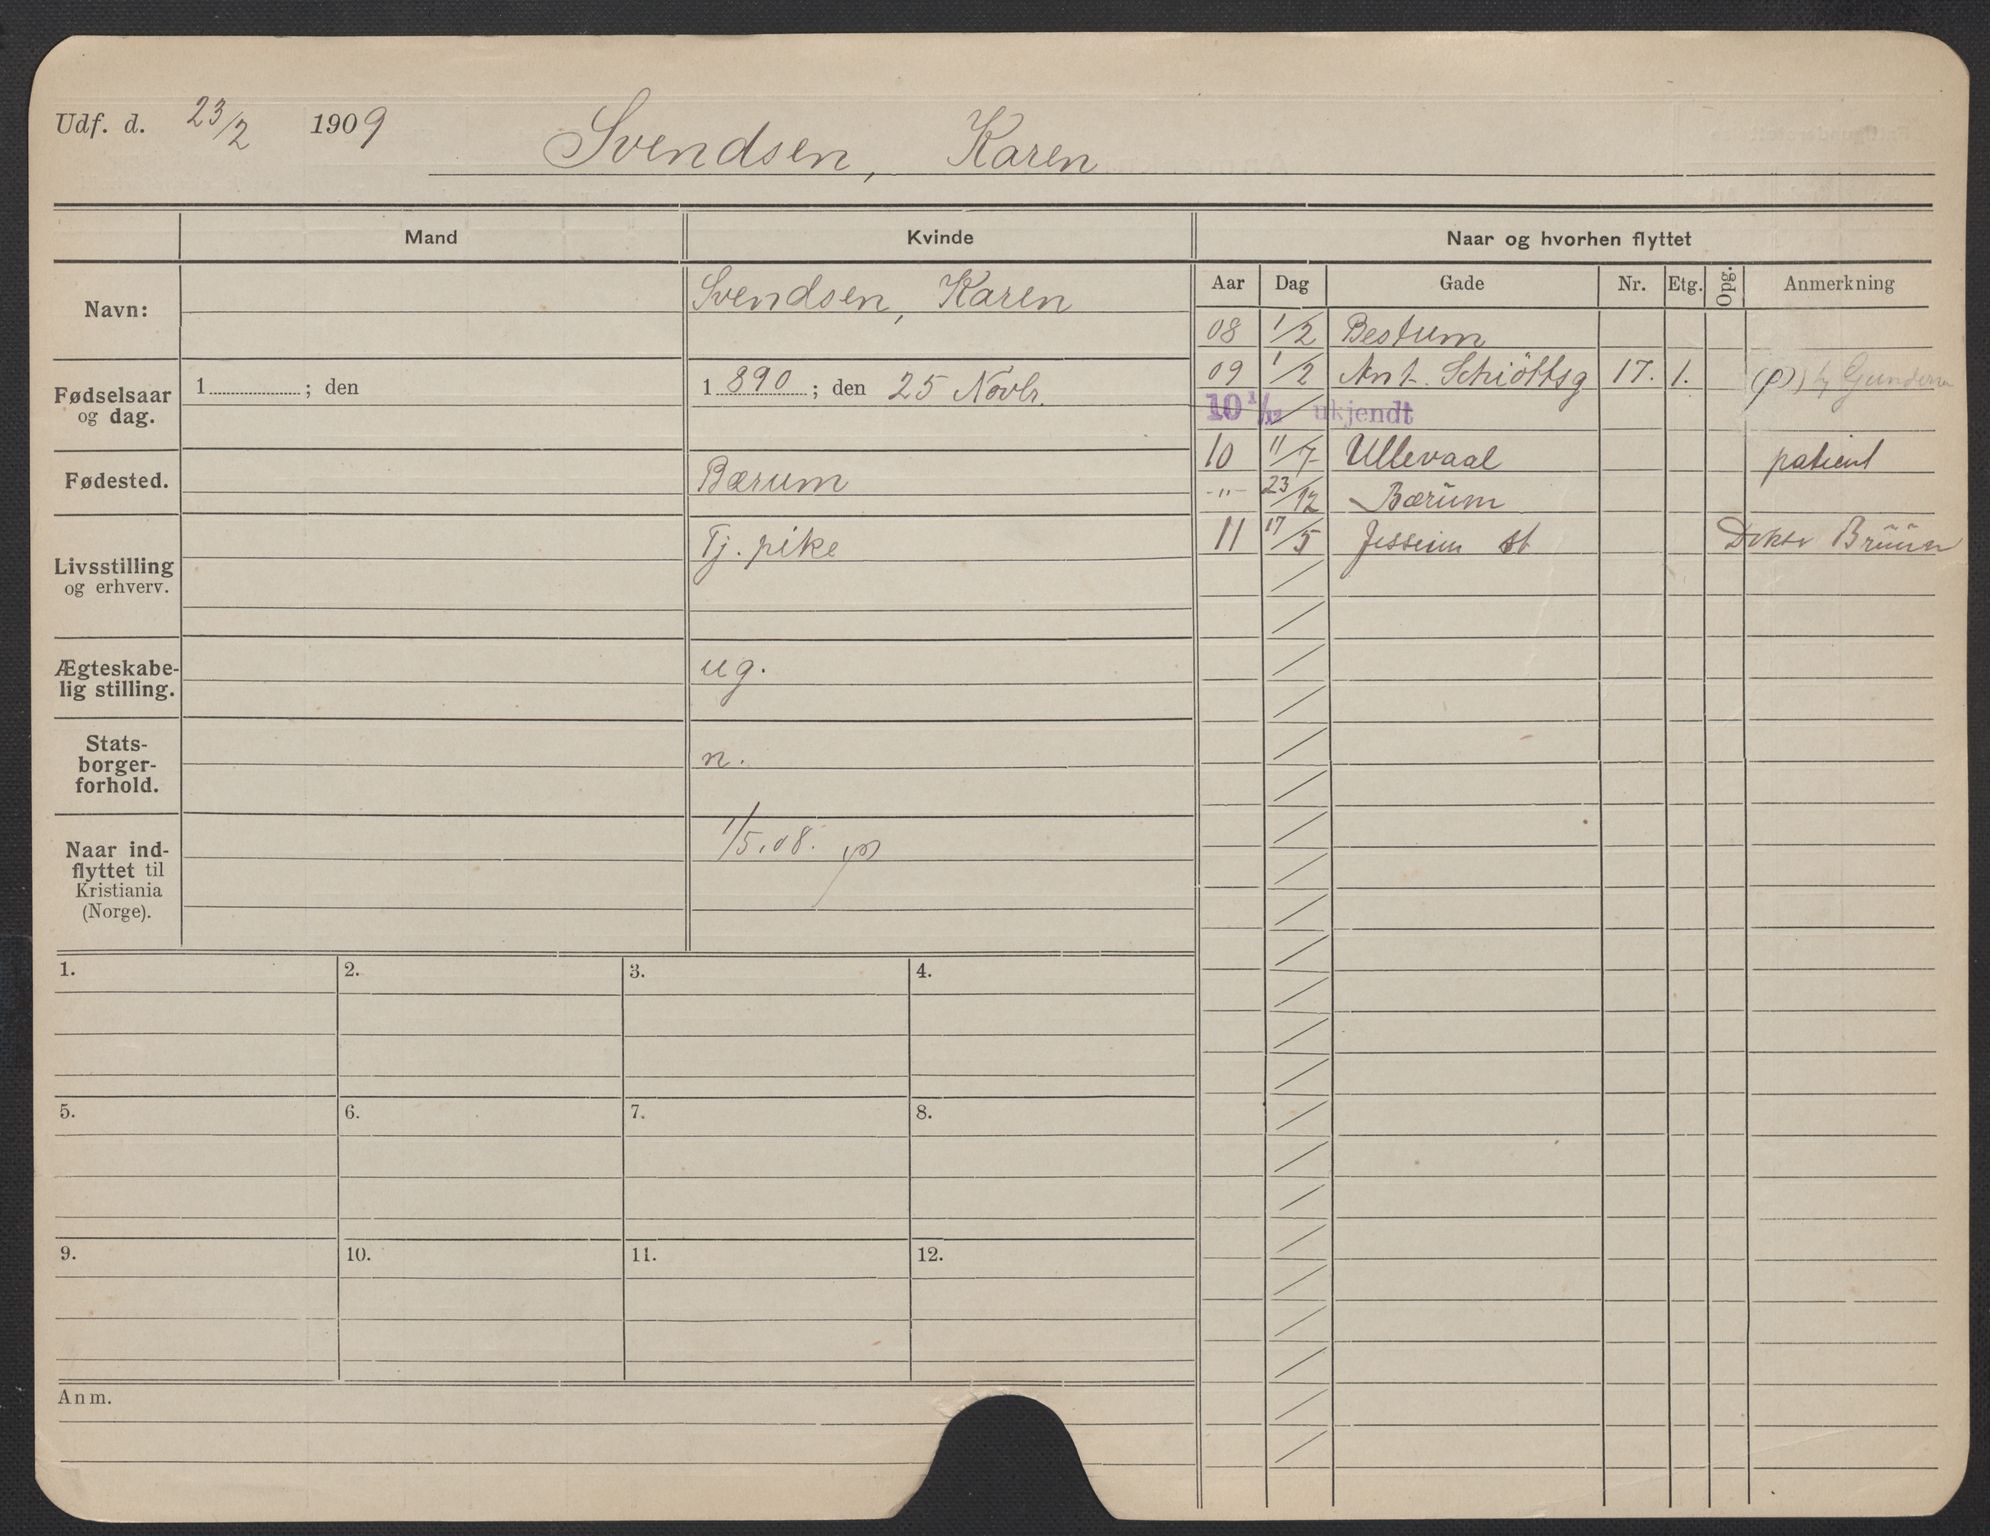 Udf. d. 23/2 1909 Svendsen, Karen
Mand Kvinde Naar og hvorhen flyttet
Aar Dag Gade Nr. Etg. Opg. Anmerkning
Navn: Svendsen, Karen
Fødselsaar og dag. 1 ; den 1 890 ; den 25 Novbr.
Fødested. Bærum
Livsstilling og erhverv. Tj. pike
Ægteskabe-
lig stilling. ug.
Stats-
borger-
forhold. n.
Naar ind-
flyttet til
Kristiania
(Norge). 1/5.08.
08 1/2 Bestum
09 1/2 Ant. Schiöttsg 17. 1. Gundersen
10 1/12 ukjendt
10 11/7 Ullevaal patient
-"- 23/12 Bærum
11 17/5 Jesseim st Doktor Brüün
1. 2. 3. 4.
5. 6. 7. 8.
9. 10. 11. 12.
Anm.